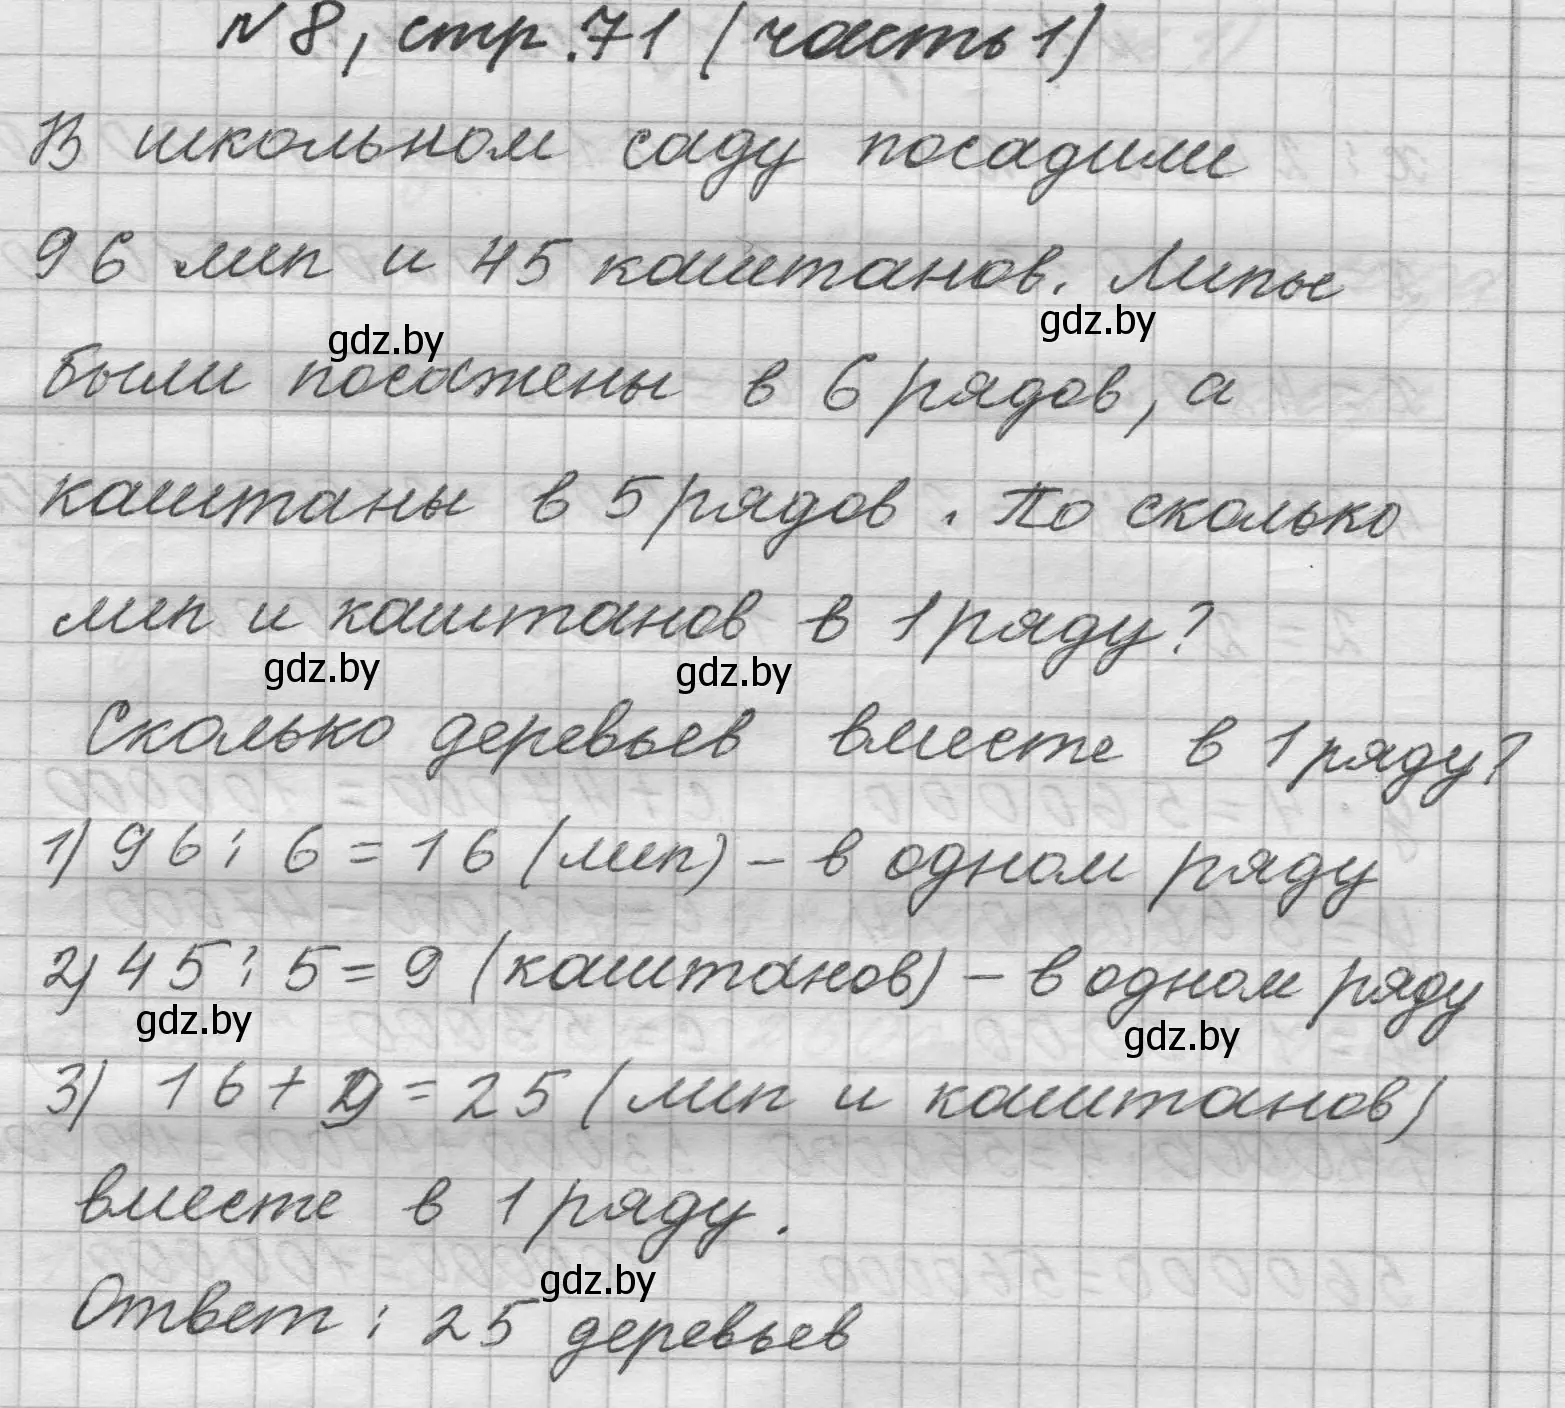 №8, стр. 71 (часть 1)
В школьном саду посадили
96 лип и 45 каштанов. Липы
gdz.by gdz.by
были посажены в 6 рядов, а
каштаны в 5 рядов. По сколько
лип и каштанов в 1 ряду?
gdz.by gdz.by
Сколько деревьев вместе в 1 ряду?
1) 96 : 6 = 16 (лип) – в одном ряду
2) 45 : 5 = 9 (каштанов) – в одном ряду
gdz.by gdz.by
3) 16 + 9 = 25 (лип и каштанов)
вместе в 1 ряду.
gdz.by
Ответ: 25 деревьев